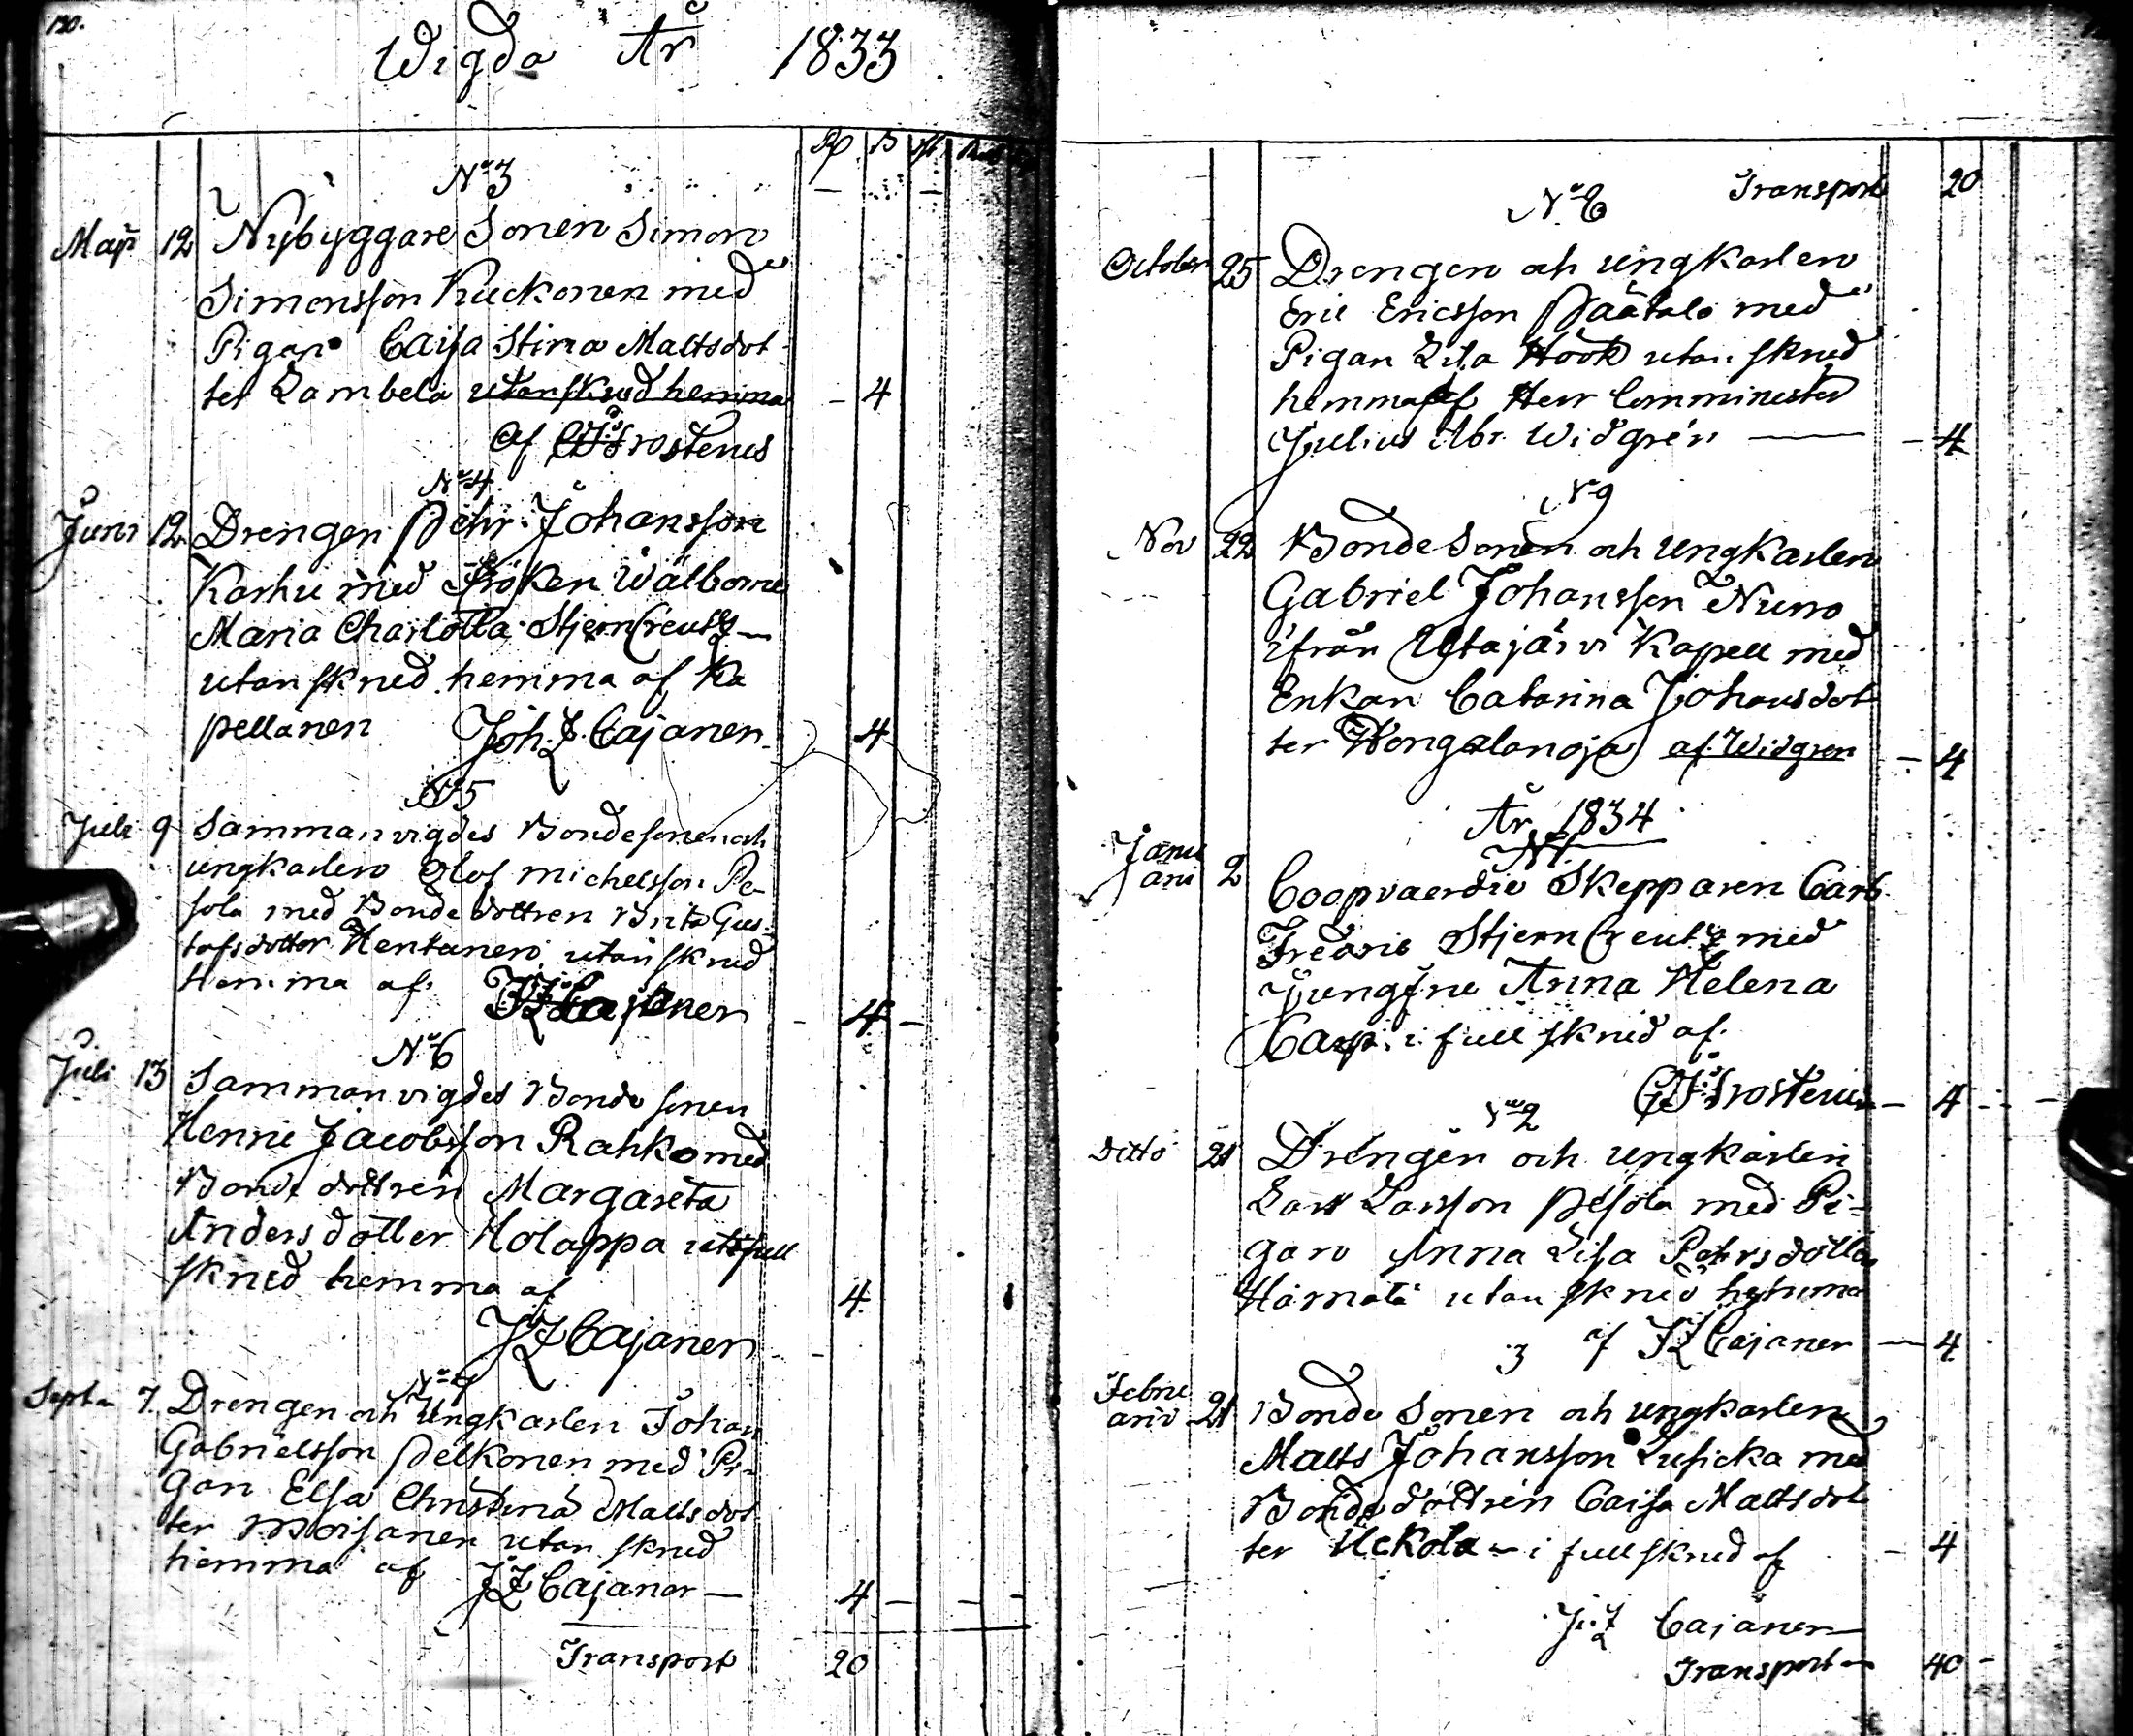 120.
Wigda År 1833
No 3
Maji 12 Nybyggare Sonen Simon
Simonsson Kuckonen med
Pigan Caisa Stina Mattsdot
ter Lambela utan skrud hemma - 4
af Frostenus
No 4
Juni 12 Drengen Pehr Johansson
Karhu med Fröken Walborne
Maria Charlotta StjernCreutz
utan skrud hemma af Ka
pellanen Joh. F. Cajanen 4
No 5
Juli 9 Sammanvigdes Bondesonen och
ungkarlen Olof Michelsson Pe-
sola med Bondedottren Brita Gus-
tafsdotter Hentunen utan skrud
hemma af JF Cajaner - 4 -
No 6
Juli 13 Sammanvigdes Bonde sonen
Henric Jacobsson Rahko med
Bonde dottren Margareta
Andersdotter Holappa full
skrud hemma af 4
JF Cajanen
No 7
Septe 7. Drengen och Ungkarlen Johan
Gabrielsson Pelkonen med Pi-
gan Elsa Christina Mattsdot
ter Moisanen utan skrud
hemma af JF Cajaner - 4 -
Transport 20
Transport 20
No 8
October 25 Drengen och ungkarlen
Eric Ericsson Päätalo med
Pigan Lisa Höök utan skrud
hemma af Herr Comminister
Julius Abr. Widgrén - 4
No 9
Nov 22 Bonde Sonen och Ungkarlen
Gabriel Johansson Nuno
ifrån Utajärvi Kapell med
Enkan Catarina Johansdot
ter Hongalanoja af Widgren - 4
År 1834
N1
Janu
ari 2 Coopvaerdie Skepparen Carl
Fredric StjernCreutz med
Jungfru Anna Helena
i full skrud af
Frostenus - 4 -
No 2
Ditto 21 Drengen och ungkarlen
Lars Larsson Pesola med Pi=
gan Anna Lisa Pehrsdotter
Härmälä utan skrud hemma
3 af JF Cajaner - 4
Febru
arii 21 Bonde Sonen och ungkarlen
Matts Johansson Lusicka med
Bonde dottren Caisa Mattsdot
ter Uckola - i full skrud af - 4
J.F Cajaner
Transport 40 -